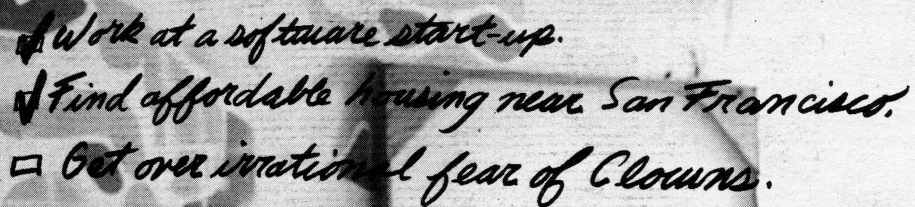 Work at a software start-up.
Find affordable housing near San Francisco.
Get over irrational fear of Clowns.